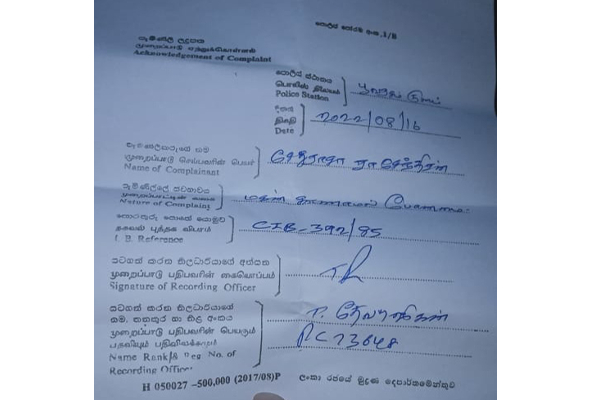 පොලිස් පෝරම අංක 1/B
පැමිණිලි ලදුපත
முறைப்பாடு ஏற்றுக்கொள்ளல்
Acknowledgement of Complaint
පොලිස් ස්ථානය
பொலிஸ் நிலையம்
Police Station
දිනය
திகதி
Date
2022/08/16
පැමිණිලිකරුගේ නම
முறைப்பாடு செய்பவரின் பெயர்
Name of Complainant
පැමිණිල්ලේ ස්වභාවය
முறைப்பாட்டின் வகை
Nature of Complaint
மகன் காணாமல் போனமை
තොරතුරු පොතේ යොමුව
தகவல் புத்தக விபரம்
I. B. Reference
CIB-392/85
සටහන් කරන නිලධාරියාගේ අත්සන
முறைப்பாடு பதிபவரின் கையொப்பம்
Signature of Recording Officer
සටහන් කරන නිලධාරියාගේ
නම, තනතුර හා නිල අංකය
முறைப்பாடு பதிபவரின் பெயரும்
பதவியும் பதிவிலக்கமும்
Name Rank/& Reg No. of
Recording Officer
PC 73648
H 050027 -500,000 (2017/08)P
ලංකා රජයේ මුද්‍රණ දෙපාර්තමේන්තුව